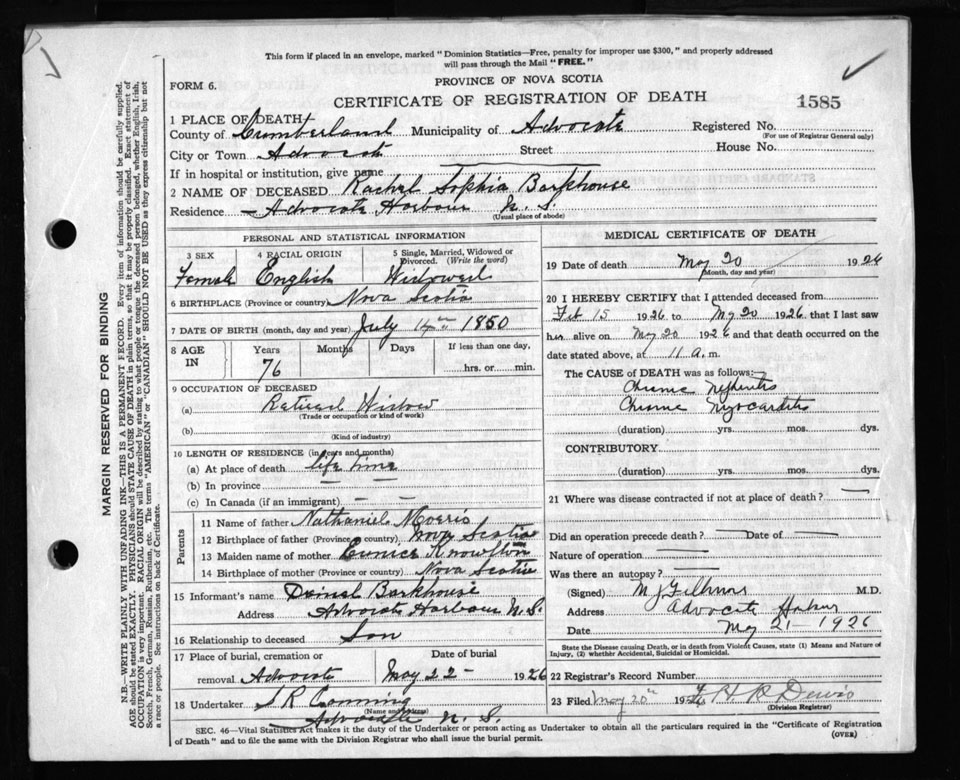 This form if placed in an envelope, marked "Dominion Statistics—Free, penalty for improper use $300," and properly addressed
will pass through the Mail "FREE."
FORM 6.
PROVINCE OF NOVA SCOTIA
CERTIFICATE OF REGISTRATION OF DEATH
1585
1 PLACE OF DEATH
County of Cumberland Municipality of Advocate Registered No.
(For use of Registrar General only)
City or Town Advocate Street House No.
If in hospital or institution, give name
2 NAME OF DECEASED Rachel Sophia Barkhouse
Residence Advocate Harbour N. S.
(Usual place of abode)
PERSONAL AND STATISTICAL INFORMATION
3 SEX 4 RACIAL ORIGIN 5 Single, Married, Widowed or Divorced. (Write the word)
Female English Widowed
6 BIRTHPLACE (Province or country) Nova Scotia
7 DATE OF BIRTH (month, day and year) July 1850
8 AGE IN Years Months Days If less than one day,
76 hrs. or min.
9 OCCUPATION OF DECEASED
(a) Retired Widow
(Trade or occupation or kind of work)
(b)
(Kind of industry)
10 LENGTH OF RESIDENCE (in years and months)
(a) At place of death life time
(b) In province — —
(c) In Canada (if an immigrant) — —
Parents
11 Name of father Nathaniel Morris
12 Birthplace of father (Province or country) Nova Scotia
13 Maiden name of mother Eunice Knowlton
14 Birthplace of mother (Province or country) Nova Scotia
15 Informant's name Barkhouse
Address Advocate Harbour N. S.
16 Relationship to deceased Son
17 Place of burial, cremation or removal Advocate
Date of burial
May 22 1926
18 Undertaker
(Name and address)
Advocate N. S.
MEDICAL CERTIFICATE OF DEATH
19 Date of death May 20 1926
(Month, day and year)
20 I HEREBY CERTIFY that I attended deceased from
Feb 15 1926 to May 20 1926. that I last saw
her alive on May 20 1926 and that death occurred on the
date stated above, at 11 a.m.
The CAUSE OF DEATH was as follows:
Chronic Nephritis
Chronic Myocarditis
(duration) yrs. mos. dys.
CONTRIBUTORY
(duration) yrs. mos. dys.
21 Where was disease contracted if not at place of death? —
Did an operation precede death? — Date of —
Nature of operation —
Was there an autopsy? —
(Signed) M.D.
Address Advocate Harbour
Date May 21 - 1926
State the Disease causing Death, or in death from Violent Causes, state (1) Means and Nature of
Injury, (2) whether Accidental, Suicidal or Homicidal.
22 Registrar's Record Number
23 Filed May 20 1926
(Division Registrar)
SEC. 46—Vital Statistics Act makes it the duty of the Undertaker or person acting as Undertaker to obtain all the particulars required in the "Certificate of Registration
of Death" and to file the same with the Division Registrar who shall issue the burial permit.
(OVER)
MARGIN RESERVED FOR BINDING
N.B.—WRITE PLAINLY WITH UNFADING INK—THIS IS A PERMANENT RECORD. Every item of information should be carefully supplied.
AGE should be stated EXACTLY. PHYSICIANS should STATE CAUSE OF DEATH in plain terms, so that it may be properly classified. Exact statement of
OCCUPATION is very important. RACIAL ORIGIN will be described by stating to what people or tongue the deceased person belonged, whether English, Irish,
Scotch, French, German, Russian, Ruthenian, etc. The terms "AMERICAN" or "CANADIAN" SHOULD NOT BE USED as they express citizenship but not
a race or people. See instructions on back of Certificate.